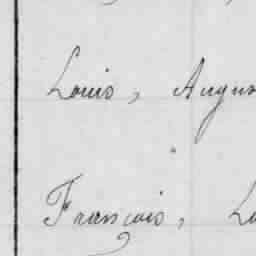 Louis, Augus
François, Lo